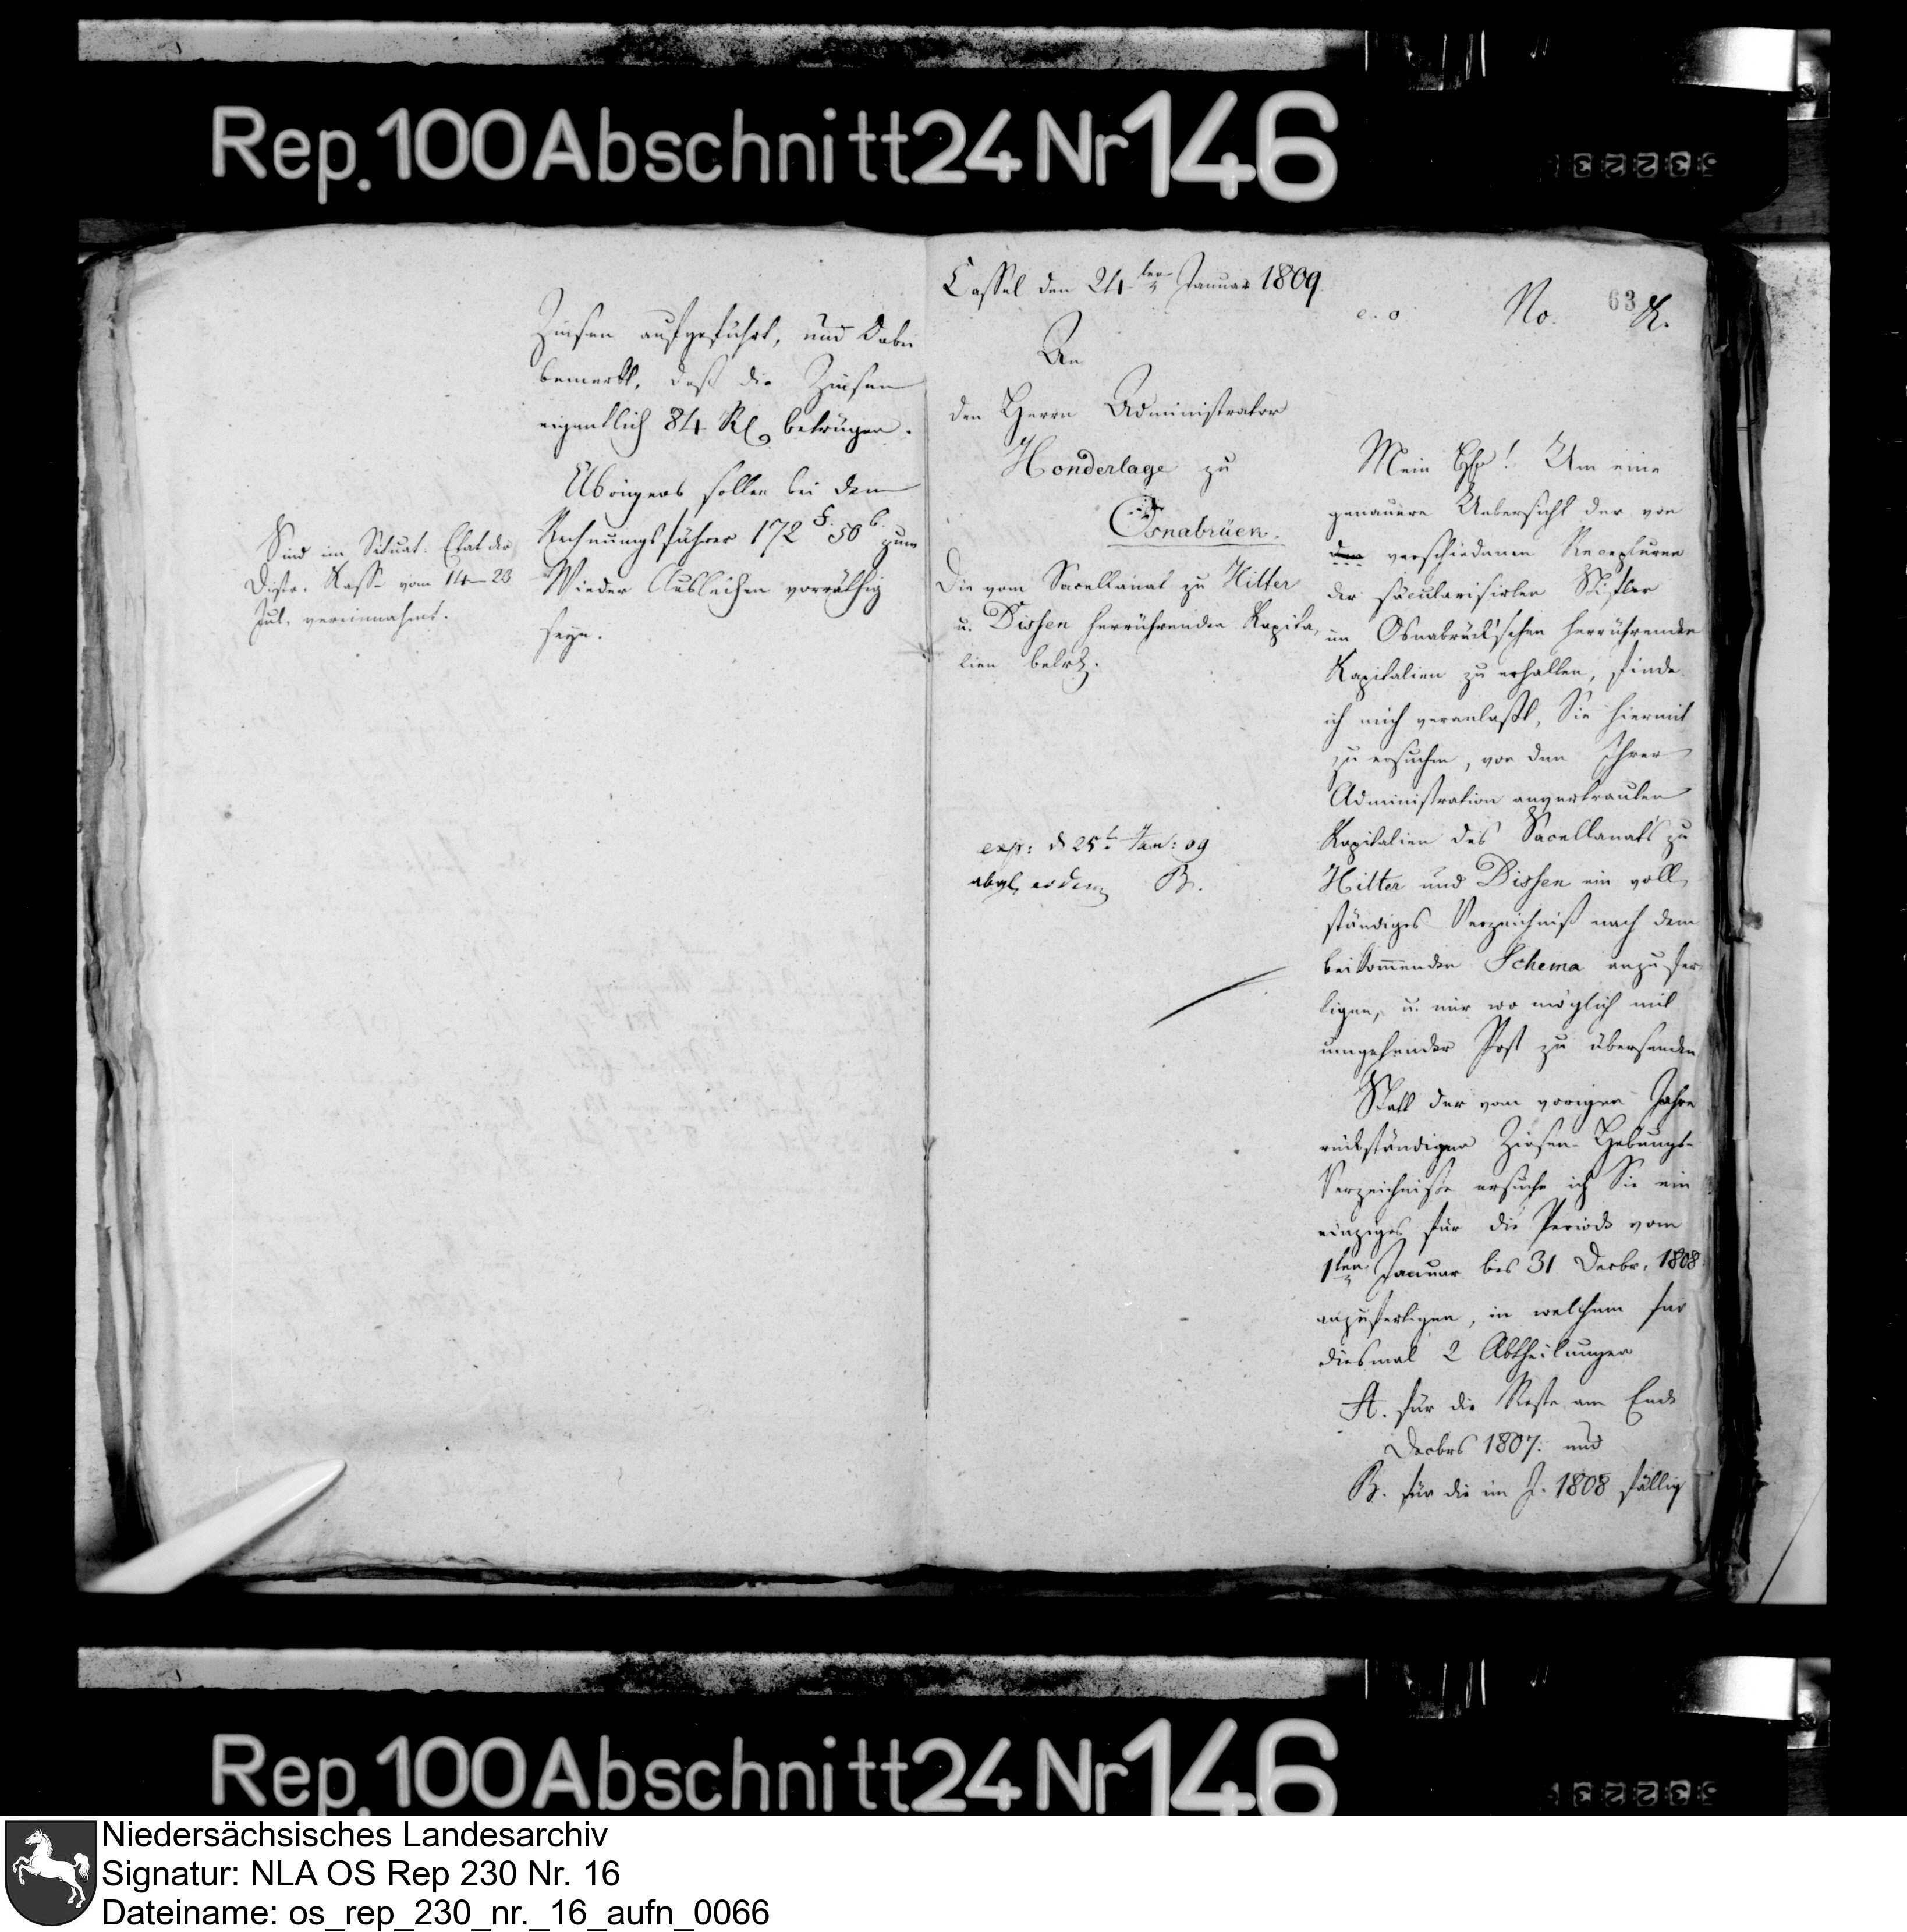 Rep. 100 Abschnitt 24 Nr 146
Zinsen aufgeführt, und dabei
bemerkt, daß die Zinsen
eigentlich 84 Rl betrügen.
Übrigens sollen bei dem
Rechnungsführer 172 F. 50 C. zum
Wieder Ausleihen vorräthig
seyn.
Sind im Situat: Etat der
Distr. Kasse vom 14–23
Jul. vereinnahmt.
Cassel den 24ten Januar 1809.
e. o
No. R.
63
An
den Herrn Administrator
Honderlage zu
Osnabrück.
Die vom Sacellanat zu Hilter
u. Dissen herrührenden Kapita,
lien betrf.
exp: d 25t Jan: 09
abgl eodem B.
Mein Hr! Um eine
genauere Uebersicht der von
den verschiedenen Recepturen
der säcularisirten Stifter
im Osnabrück'schen herrührenden
Kapitalien zu erhalten, finde
ich mich veranlaßt, Sie hiermit
zu ersuchen, von den Ihrer
Administration anvertrauten
Kapitalien des Sacellanats zu
Hilter und Dissen ein voll,
ständiges Verzeichniß nach dem
beikommenden Schema anzufer
tigen, u. mir wo möglich mit
umgehender Post zu übersenden
Statt der vom vorigen Jahre
rückständigen Zinsen-Hebungs-
Verzeichnisse ersuche ich Sie ein
einziges für die Periode vom
1ten Januar bis 31 Decbr. 1808.
anzufertigen, in welchem für
diesmal 2 Abtheilungen
A. für die Reste am Ende
Decbrs 1807. und
B. für die im J. 1808 fällig
Rep. 100 Abschnitt 24 Nr 146
Niedersächsisches Landesarchiv
Signatur: NLA OS Rep 230 Nr. 16
Dateiname: os_rep_230_nr._16_aufn_0066